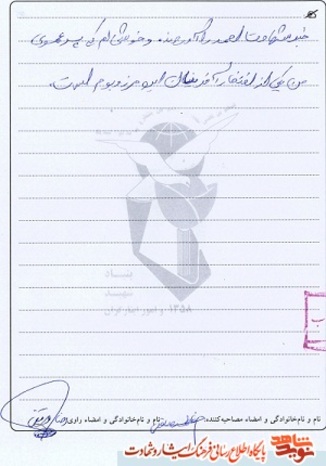 خبر شهادت احمد را آوردند و خوشحالم که پسر عموی
من یکی از افتخار آفرینان این مرز و بوم است.
بنیاد
شهید
۱۳۵۸ و امور ایثارگران
نام و نام خانوادگی و امضاء مصاحبه‌کننده:
نام و نام خانوادگی و امضاء راوی:
نوید شاهد
پایگاه اطلاع رسانی فرهنگ ایثار و شهادت